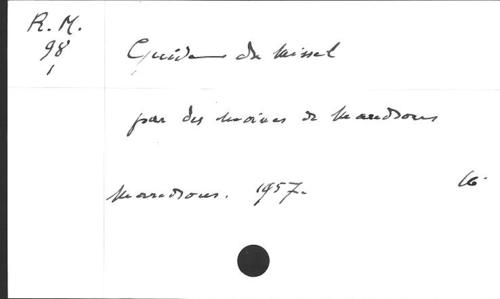 R. M.
98
1
Guide du missel
par des moines de Maredsous
Maredsous. 1957.
16°